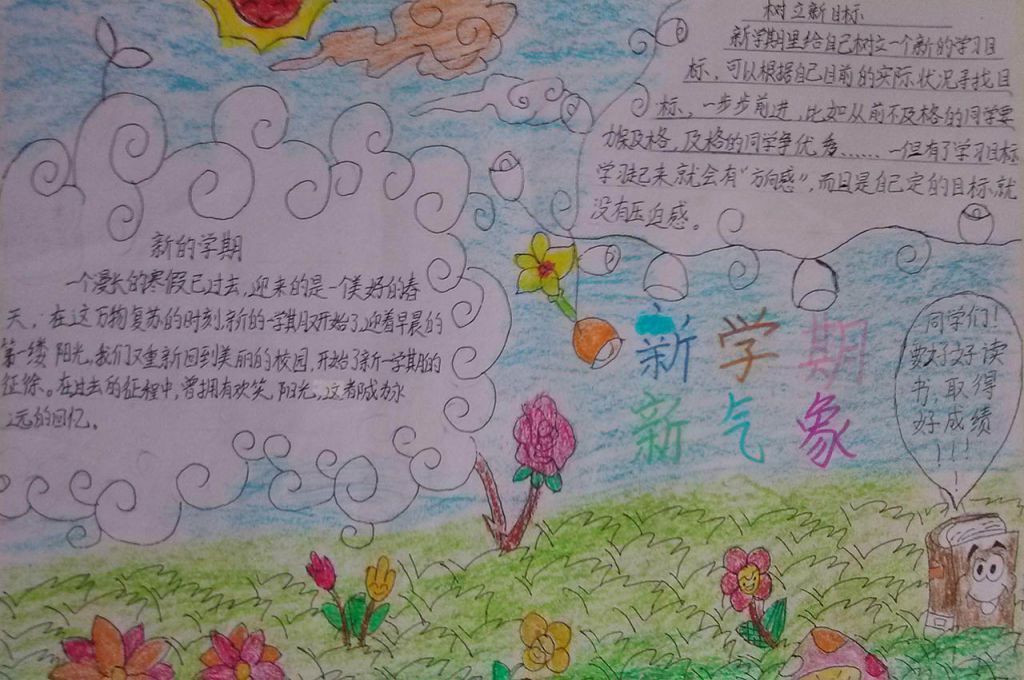 树立新目标
新学期里给自己树立一个新的学习目
标，可以根据自己目前的实际状况寻找目
标，一步步前进，比如从前不及格的同学要
力保及格，及格的同学争优秀……一但有了学习目标
学习起来就会有“方向感”，而且是自己定的目标就
没有压迫感。
新的学期
一个漫长的寒假已过去，迎来的是一个美好的春
天，在这万物复苏的时刻，新的一学期又开始了，迎着早晨的
第一缕阳光，我们又重新回到美丽的校园，开始了新一学期的
征徐。在过去的征程中，曾拥有欢笑，阳光，这都成为永
远的回忆。
新学期
新气象
同学们！
要好好读
书，取得
好成绩
！！！